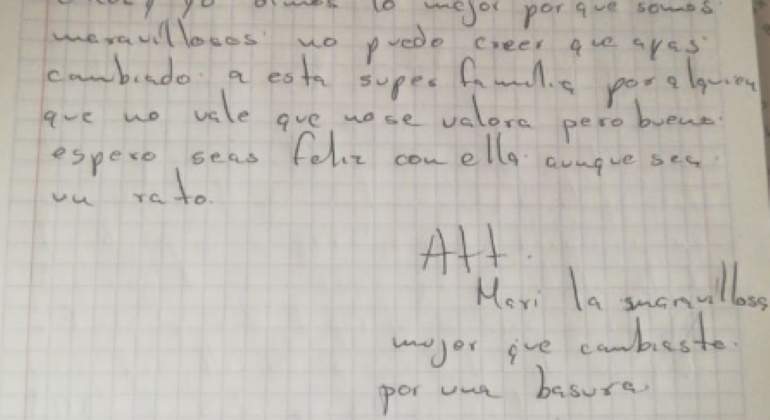 y yo dimos lo mejor por que somos
meravillosos no puedo creer que ayas
cambiado a esta super familia por alguien
que no vale que no se valora pero bueno.
espero seas feliz con ella aunque sea
un rato.
Att.
Mari la maravillosa
mujer que cambiaste.
por una basura.